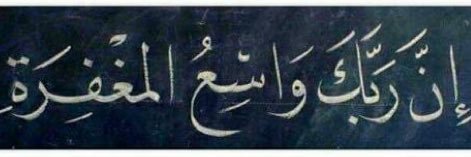 إِنَّ رَبَّكَ وَاسِعُ المَغْفِرَةِ